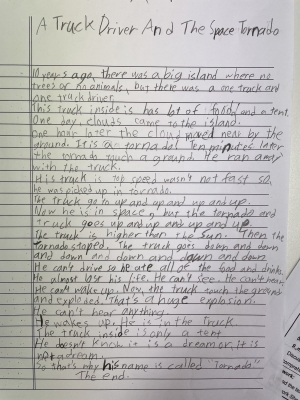 A Truck Driver And The Space Tornado
10 years ago, there was a big island where no
trees or no animals, but there was a one truck and
one truck driver.
This truck inside is has lot of food, and a tent.
One day, clouds came to the island.
One hour later the cloud moved near by the
ground. It is a tornado! Ten minutes later
the tornado touch a ground. He ran away
with the truck.
His truck is top speed wasn't not fast so,
he was picked up in tornado.
The truck go up and up and up and up.
Now he is in space, but the tornado and
truck goes up and up and up and up.
The truck is higher than the sun. Then the
tornado stoped. The truck goes down and down
and down and down and down and down
He can't drive so he ate all of the food and drink.
He almost lose his life. He can't see. He can't hear.
He can't wake up. Now, the truck touch the ground
and exploded. That's a huge explosion.
He can't hear anything.
He wakes up. He is in the truck.
The truck inside is only a tent
He doesn't know it is a dream or, it is
not a dream.
So that's why his name is called "Tornado"
The end.